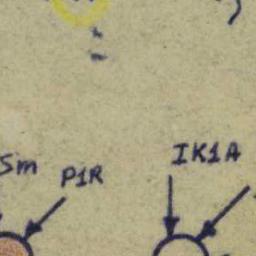 Sm P1R IK1A